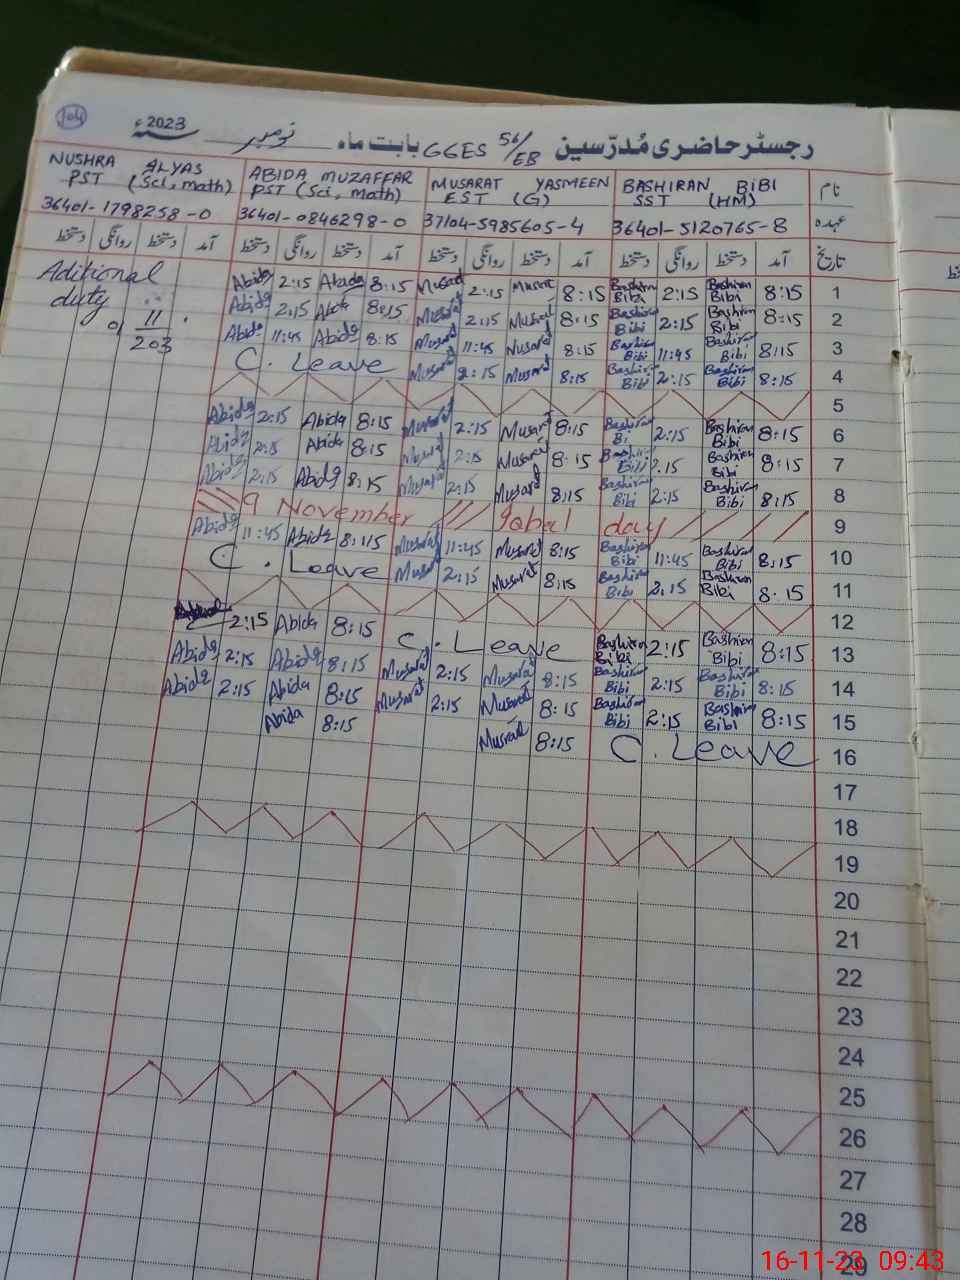 104
رجسٹر حاضری مُدرّسین GGES 56/EB بابت ماہ نومبر 2023ء
نام BASHIRAN BIBI MUSARAT YASMEEN ABIDA MUZAFFAR NUSHRA ALYAS
عہدہ SST (HM) EST (G) PST (Sci, math) PST (Sci, math)
36401-5120765-8 37104-5985605-4 36401-0846298-0 36401-1798258-0
تاریخ آمد دستخط روانگی دستخط آمد دستخط روانگی دستخط آمد دستخط روانگی دستخط آمد دستخط روانگی دستخط
Aditional
duty
11
203
1 8:15 Bashiran Bibi 2:15 Bashiran Bibi 8:15 Musarat 2:15 Musarat 8:15 Abida 2:15 Abida
2 8:15 Bashiran Bibi 2:15 Bashiran Bibi 8:15 Musarat 2:15 Musarat 8:15 Abida 2:15 Abida
3 8:15 Bashiran Bibi 11:45 Bashiran Bibi 8:15 Musarat 11:45 Musarat 8:15 Abida 11:45 Abida
4 8:15 Bashiran Bibi 2:15 Bashiran Bibi 8:15 Musarat 2:15 Musarat C. Leave
5
6 8:15 Bashiran Bibi 2:15 Bashiran Bi 8:15 Musarat 2:15 Musarat 8:15 Abida 2:15 Abida
7 8:15 Bashiran Bibi 2:15 Bashiran Bibi 8:15 Musarat 2:15 Musarat 8:15 Abida 2:15 Abida
8 8:15 Bashiran Bibi 2:15 Bashiran Bibi 8:15 Musarat 2:15 Musarat 8:15 Abida 2:15 Abida
9 9 November Iqbal day
10 8:15 Bashiran Bibi 11:45 Bashiran Bibi 8:15 Musarat 11:45 Musarat 8:15 Abida 11:45 Abida
11 8:15 Bashiran Bibi 2:15 Bashiran Bibi 8:15 Musarat 2:15 Musarat C. Leave
12
13 8:15 Bashiran Bibi 2:15 Bashiran Bibi C. Leave 8:15 Abida 2:15
14 8:15 Bashiran Bibi 2:15 Bashiran Bibi 8:15 Musarat 2:15 Musarat 8:15 Abida 2:15 Abida
15 8:15 Bashiran Bibi 2:15 Bashiran Bibi 8:15 Musarat 2:15 Musarat 8:15 Abida 2:15 Abida
16 C. Leave 8:15 Musarat 8:15 Abida
17
18
19
20
21
22
23
24
25
26
27
28
29
16-11-23 09:43